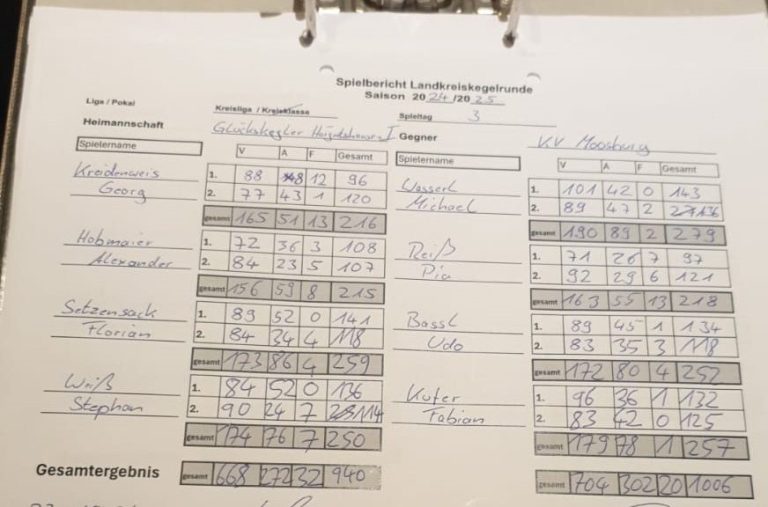 Spielbericht Landkreiskegelrunde
Saison 2024/2025
Liga / Pokal Kreisliga / Kreisklasse Spieltag 3
Heimannschaft Glückskegler I Gegner KV Moosburg
Spielername V A F Gesamt Spielername V A F Gesamt
Kreidenweis 1. 88 8 12 96 Wasserl 1. 101 42 0 143
Georg 2. 77 43 1 120 Michael 2. 89 47 2 136
gesamt 165 51 13 216 gesamt 190 89 2 279
Hobmaier 1. 72 36 3 108 Reiß 1. 71 26 7 97
Alexander 2. 84 23 5 107 Pia 2. 92 29 6 121
gesamt 156 59 8 215 gesamt 163 55 13 218
Setzensack 1. 89 52 0 141 Bassl 1. 89 45 1 134
Florian 2. 84 34 4 118 Udo 2. 83 35 3 118
gesamt 173 86 4 259 gesamt 172 80 4 252
Weiß 1. 84 52 0 136 Kufer 1. 96 36 1 132
Stephan 2. 90 24 7 114 Fabian 2. 83 42 0 125
gesamt 174 76 7 250 gesamt 179 78 1 257
Gesamtergebnis gesamt 668 272 32 940 gesamt 704 302 20 1006